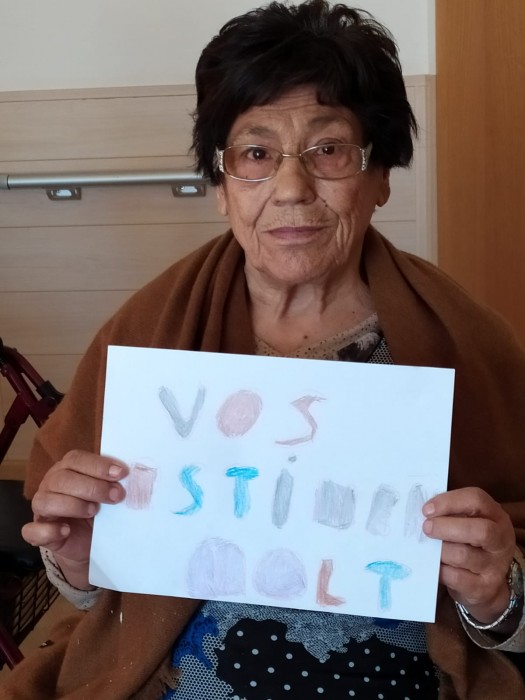 VOS
ESTiMEM
MOLT